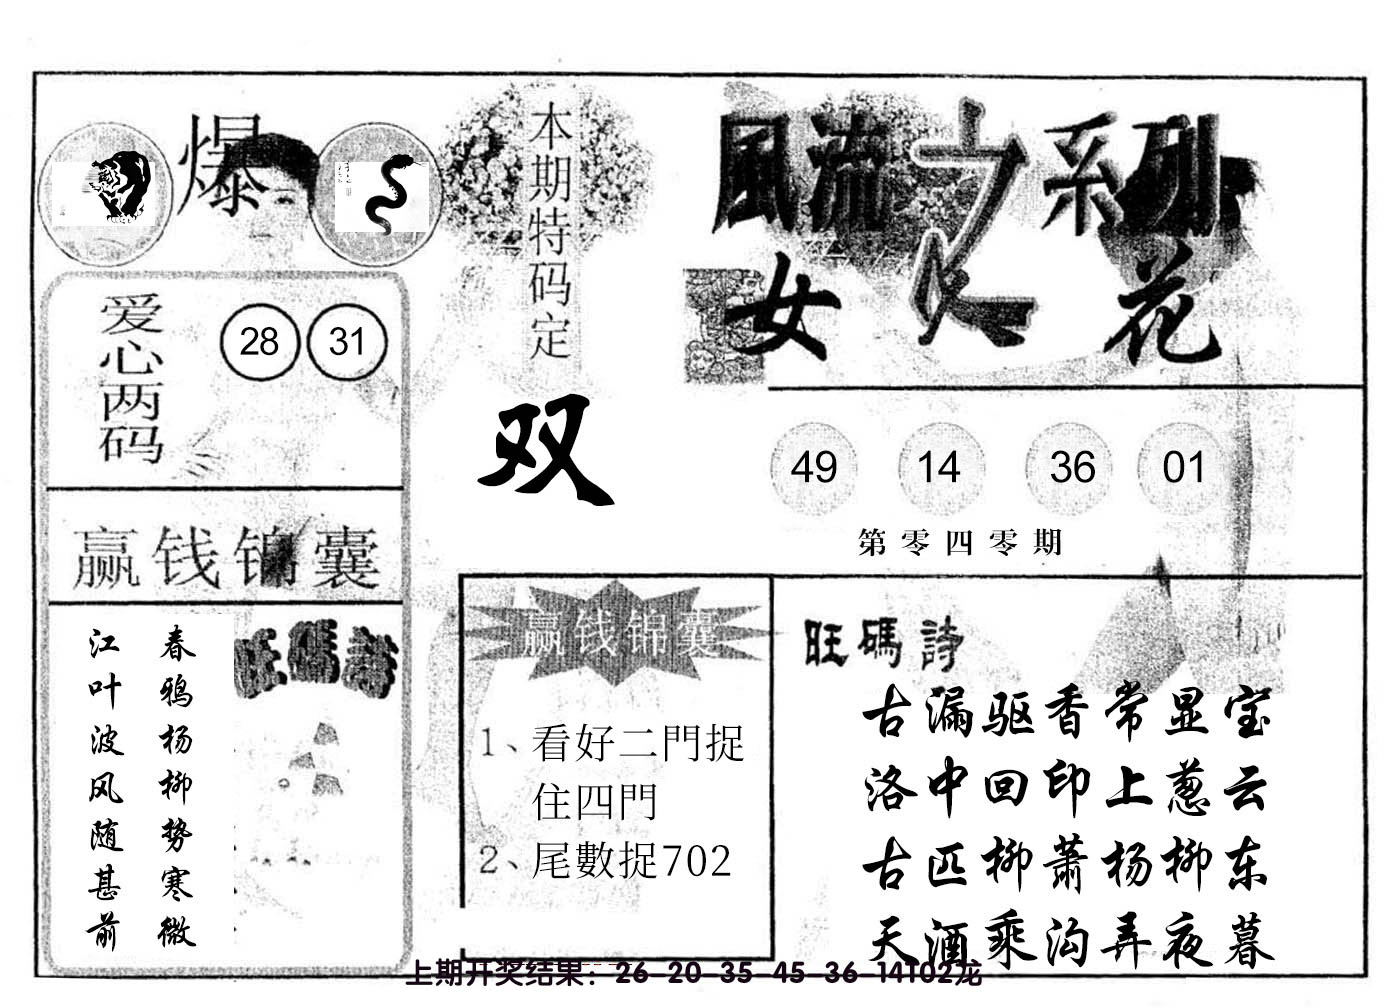 爆
本期特码定
双
風流之系列
女人花
爱心两码
28 31
49 14 36 01
第零四零期
赢钱锦囊
春鸦杨柳势寒微
江叶波风随甚前
旺碼詩
赢钱锦囊
1、看好二門捉
住四門
2、尾數捉702
旺碼詩
古漏驱香常显宝
洛中回印上葱云
古匹柳萧杨柳东
天酒乘沟弄夜暮
上期开奖结果：26-20-35-45-36-14T02龙